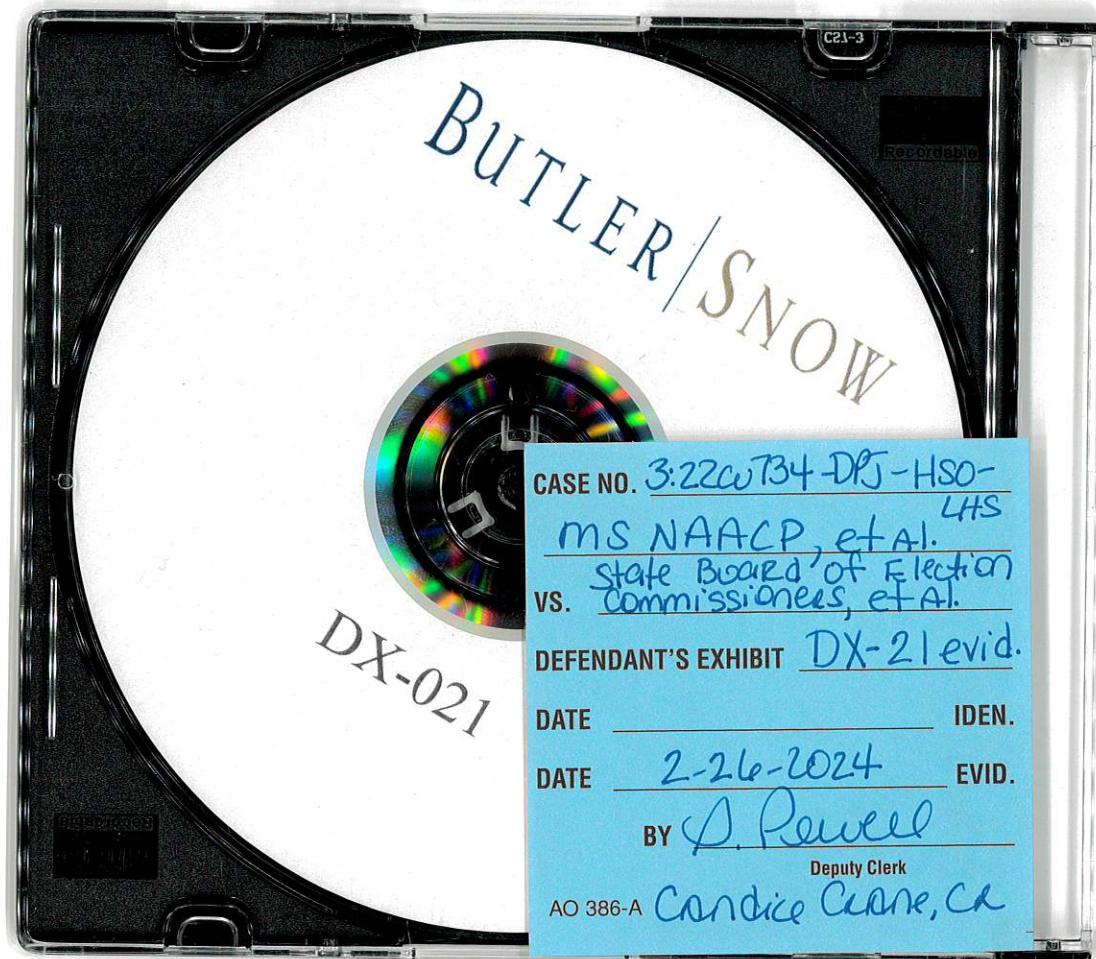 CS7-3
Recordable
BUTLER | SNOW
DX-021
CASE NO. 3:22cv734-DPJ-HSO-
LHS
MS NAACP, et Al.
State Board of Election
VS. Commissioners, et Al.
DEFENDANT'S EXHIBIT DX-21 evid.
DATE IDEN.
DATE 2-26-2024 EVID.
BY
Deputy Clerk
AO 386-A Candice Crane, CR
Recordable